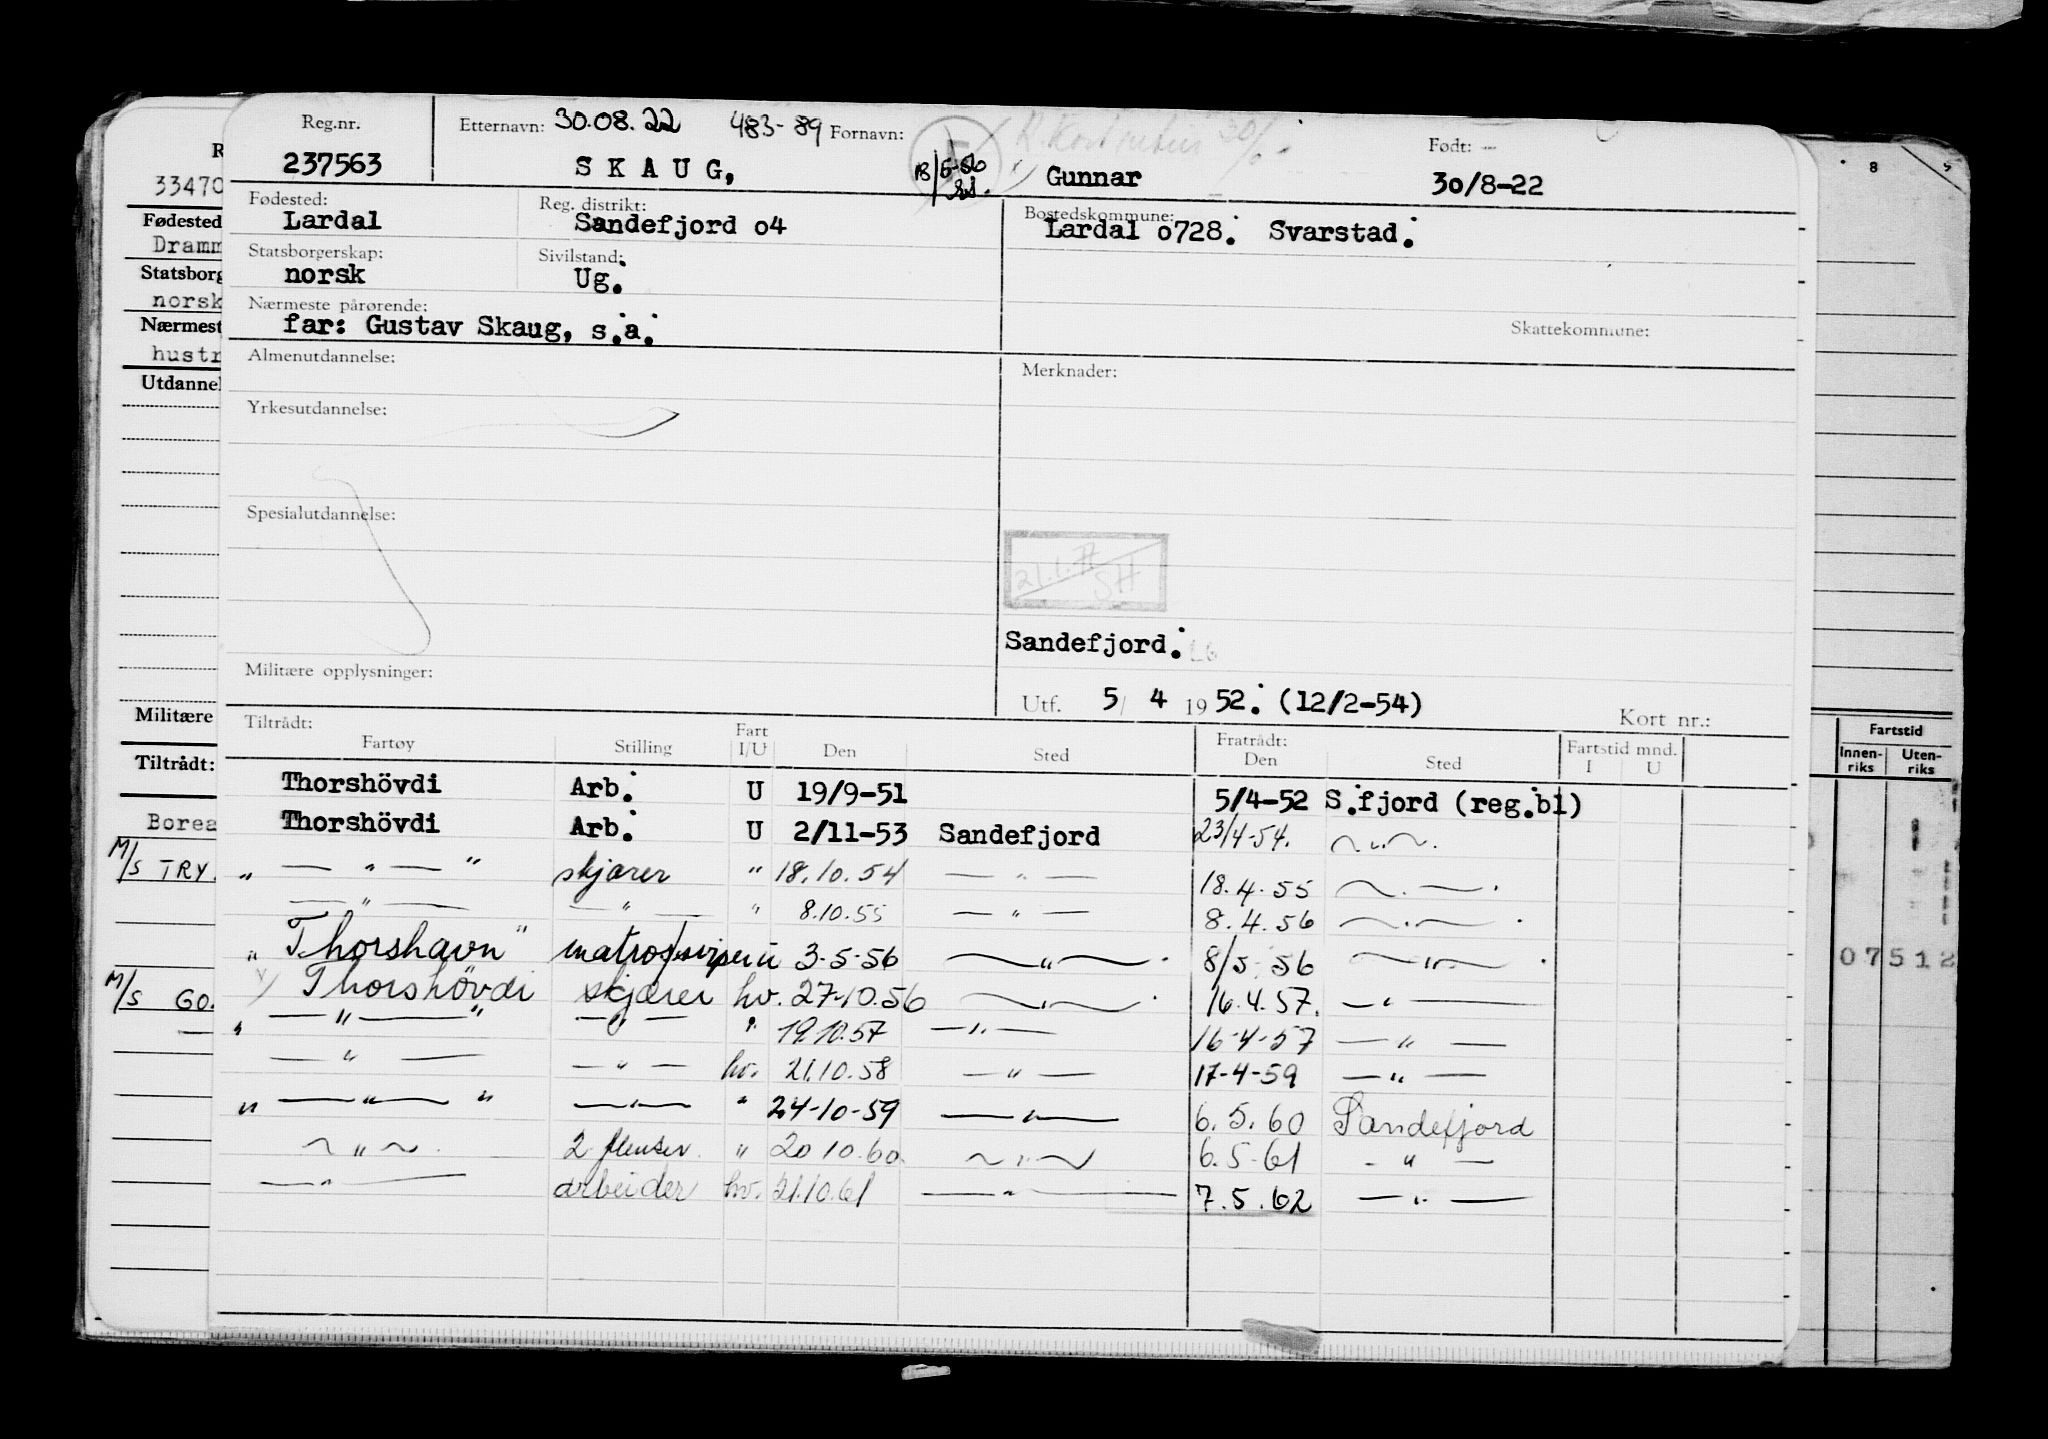 Reg.nr. Etternavn: 30.08.22 483-89 Fornavn: Født:
237563 SKAUG, 18/5-56 Gunnar 30/8-22
Fødested: Reg. distrikt: Bostedskommune:
Lardal Sandefjord o4 Lardal o728. Svarstad.
Statsborgerskap: Sivilstand:
norsk Ug.
Nærmeste pårørende: Skattekommune:
far: Gustav Skaug, s.a.
Almenutdannelse: Merknader:
Yrkesutdannelse:
Spesialutdannelse:
21.1.77 SH
Sandefjord.
Militære opplysninger:
Utf. 5/ 4 1952. (12/2-54)
Kort nr.:
Tiltrådt: Fratrådt:
Fartøy Stilling Fart I/U Den Sted Den Sted Fartstid mnd. I U
Thorshövdi Arb. U 19/9-51 5/4-52 S.fjord (reg.bl)
Thorshövdi Arb. U 2/11-53 Sandefjord 23/4-54. ~"~.
" — " — " skjærer " 18.10.54 — " — 18.4.55 ~ . — .
— " — — " — " 8.10.55 — " — 8.4.56 ~ . ~ .
" Thorshavn" 3-5-56 ~ " ~ . 8/5-56 ~ " ~ .
Thorshövdi skjærer hv. 27-10.56 ~ . ~ . 16.4.57. — " —
" — " — " — " — " 19.10.57 — " — 16-4-57 — " —
— " — — " — hv. 21.10.58 — " — 17-4-59 — " —
" — " — " — " — " 24-10-59 — " — 6.5.60 Sandefjord
~ " ~ . 2 flenser. " 20 10.60. ~ " ~ 6.5-61 - " —
— " — arbeider hv. 21.10.61 — " — 7.5.62 — " —
33470
Fødested
Dramm
Statsborg
norsk
Nærmest
hustr
Utdannel
Militære
Tiltrådt:
Borea
M/S TRY.
M/S GO.
8
Fartstid
Innen-riks Uten-riks
07512